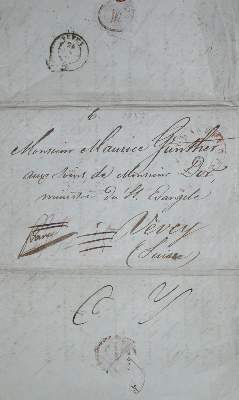 VEVEY
6
Monsieur Maurice Günther
aux soins de Monsieur Dor,
ministre du St. Evangile
Vevey
(Suisse)